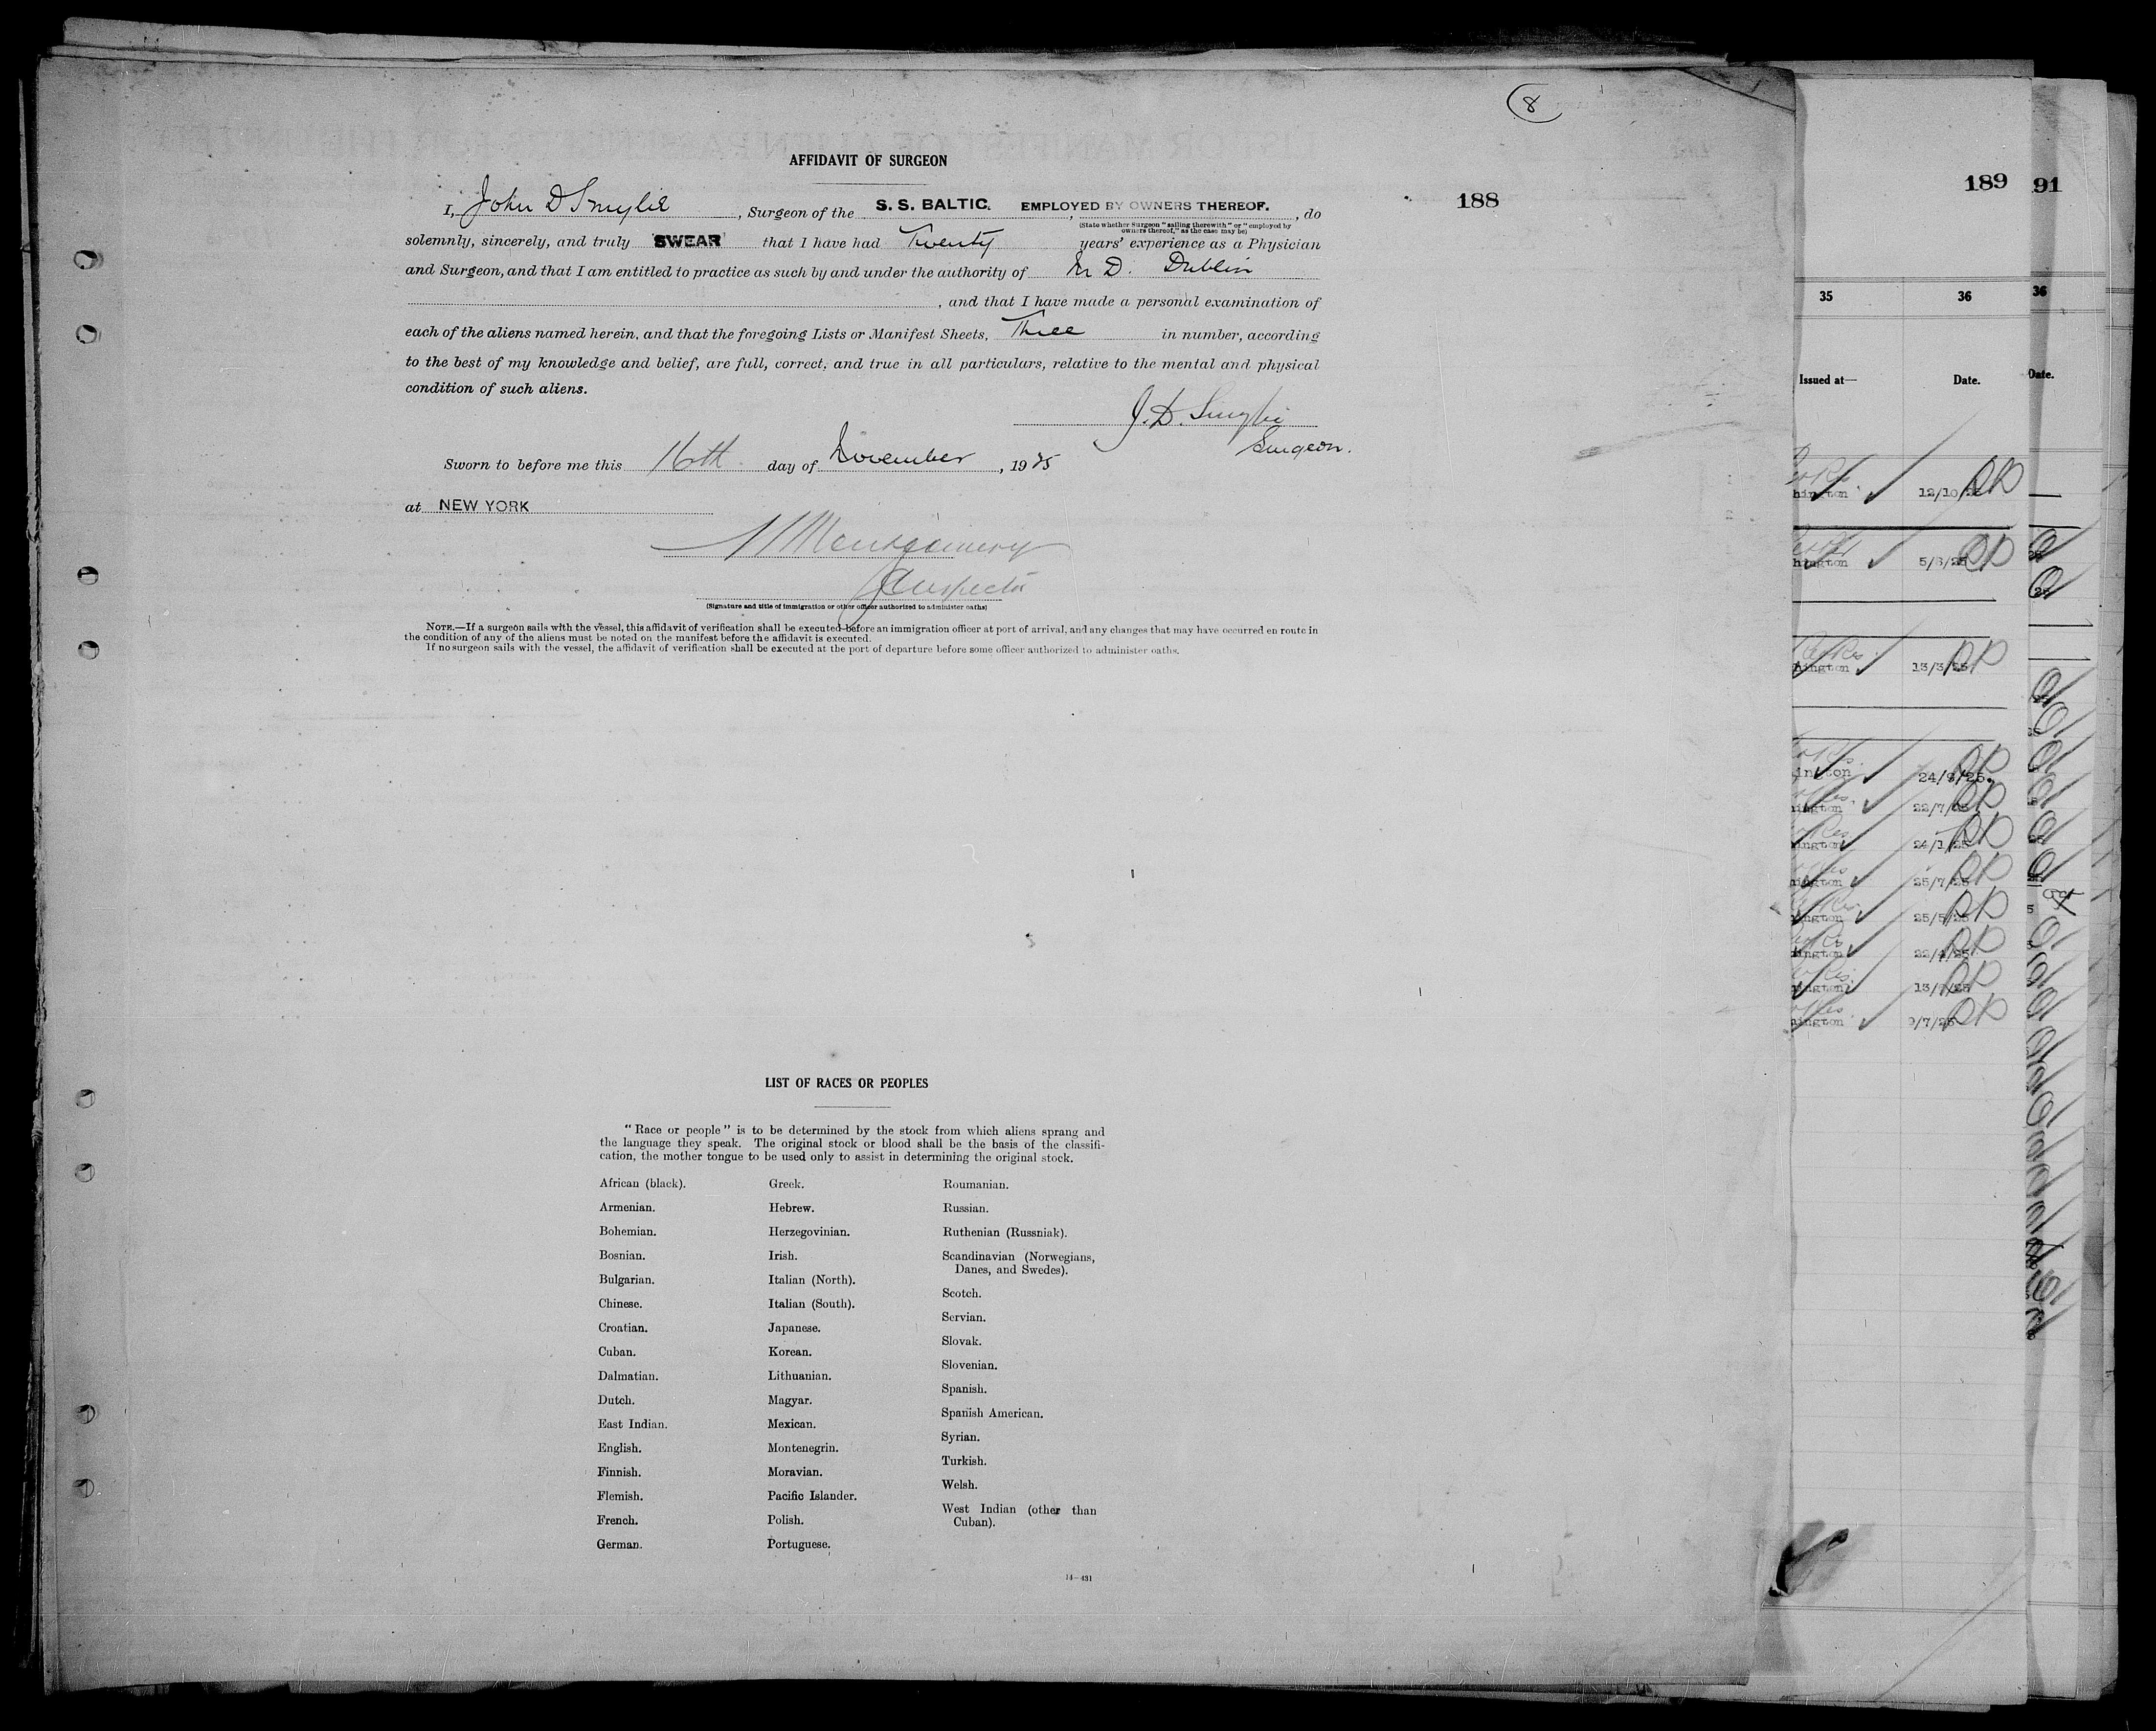 8
AFFIDAVIT OF SURGEON
188
I, John D Smylie, Surgeon of the S. S. BALTIC. , EMPLOYED BY OWNERS THEREOF. , do
(State whether Surgeon "sailing therewith" or "employed by
owners thereof," as the case may be)
solemnly, sincerely, and truly SWEAR that I have had Twenty years' experience as a Physician
and Surgeon, and that I am entitled to practice as such by and under the authority of M D. Dublin
, and that I have made a personal examination of
each of the aliens named herein, and that the foregoing Lists or Manifest Sheets, Three in number, according
to the best of my knowledge and belief, are full, correct, and true in all particulars, relative to the mental and physical
condition of such aliens.
J. D. Smylie
Surgeon.
Sworn to before me this 16th day of November, 1925
at NEW YORK
Montgomery
Inspector
(Signature and title of immigration or other officer authorized to administer oaths)
NOTE.—If a surgeon sails with the vessel, this affidavit of verification shall be executed before an immigration officer at port of arrival, and any changes that may have occurred en route in
the condition of any of the aliens must be noted on the manifest before the affidavit is executed.
If no surgeon sails with the vessel, the affidavit of verification shall be executed at the port of departure before some officer authorized to administer oaths.
LIST OF RACES OR PEOPLES
"Race or people" is to be determined by the stock from which aliens sprang and
the language they speak. The original stock or blood shall be the basis of the classifi-
cation, the mother tongue to be used only to assist in determining the original stock.
African (black).
Armenian.
Bohemian.
Bosnian.
Bulgarian.
Chinese.
Croatian.
Cuban.
Dalmatian.
Dutch.
East Indian.
English.
Finnish.
Flemish.
French.
German.
Greek.
Hebrew.
Herzegovinian.
Irish.
Italian (North).
Italian (South).
Japanese.
Korean.
Lithuanian.
Magyar.
Mexican.
Montenegrin.
Moravian.
Pacific Islander.
Polish.
Portuguese.
Roumanian.
Russian.
Ruthenian (Russniak).
Scandinavian (Norwegians,
Danes, and Swedes).
Scotch.
Servian.
Slovak.
Slovenian.
Spanish.
Spanish American.
Syrian.
Turkish.
Welsh.
West Indian (other than
Cuban).
14—431
189
35 36
Issued at— Date.
hington 12/10/25
hington 5/6/25
hington 13/3/25
ington 24/9/25.
hington 22/7/25
hington 24/1/25
hington 25/7/25
hington 25/5/25
hington 22/4/25
hington
hington 9/7/25
91
36
Date.